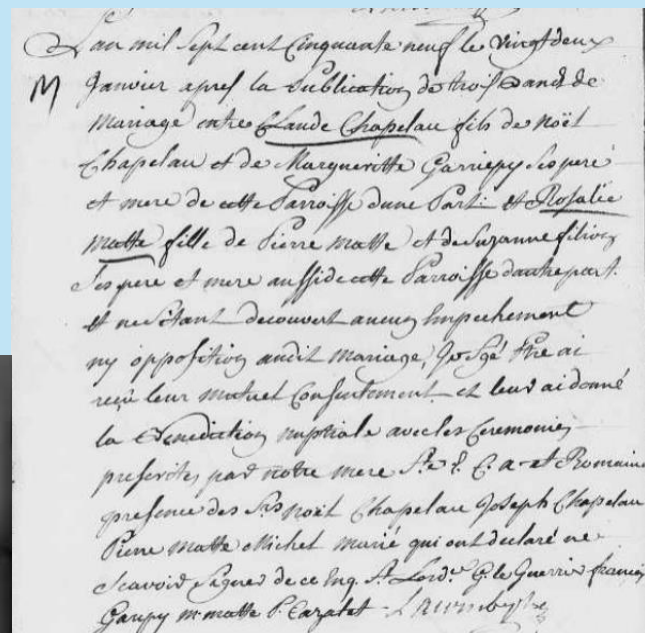 L'an mil Sept cent Cinquante neuf le vingt deux
M Janvier apres la Publication de trois Bancs de
mariage entre Claude Chapelau fils de noël
Chapelau et de Margueritte Garriepy Ses pere
et mere de cette Parroisse dune Part: et Rosalie
matte fille de Pierre matte et de Suzanne filion
Ses pere et mere aussi de cette Parroisse dautre part.
et ne Sétant decouvert aucun Empechement
ny opposition audit mariage, Je Sgé Ptre ai
reçu leur mutuel Consentement et leur ai donné
la Benediction nuptiale avec les Ceremonies
prescrites par notre mere Ste E. C. a. et Romaine
presence des Srs noël Chapelau Joseph Chapelau
Pierre matte Michel marié qui ont declaré ne
Scavoir Signer de ce Enq. St. Lord. G. le Guerrier françois
Garipy m. matte P.